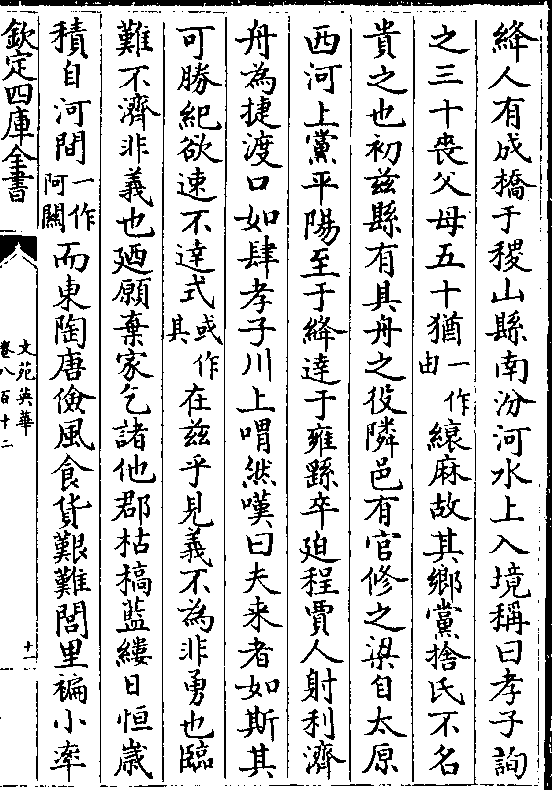 絳人有成橋于稷山縣南汾河水上入境稱曰孝子詢
之三十喪父母五十猶一作由縗麻故其鄉黨捨氏不名
貴之也初兹縣有具舟之役隣邑有官修之梁自太原
西河上黨平陽至于絳達于雍繇卒廹程賈人射利濟
舟為捷渡口如肆孝子川上喟然嘆曰夫来者如斯其
可勝紀欲速不達式或作其在兹乎見義不為非勇也臨
難不濟非義也廼願棄家乞諸他郡枯槁藍縷日恒歲
積自河間一作阿闗而東陶唐儉風食貨艱難閭里褊小率
欽定四庫全書
文苑英華
卷八百十二
十一